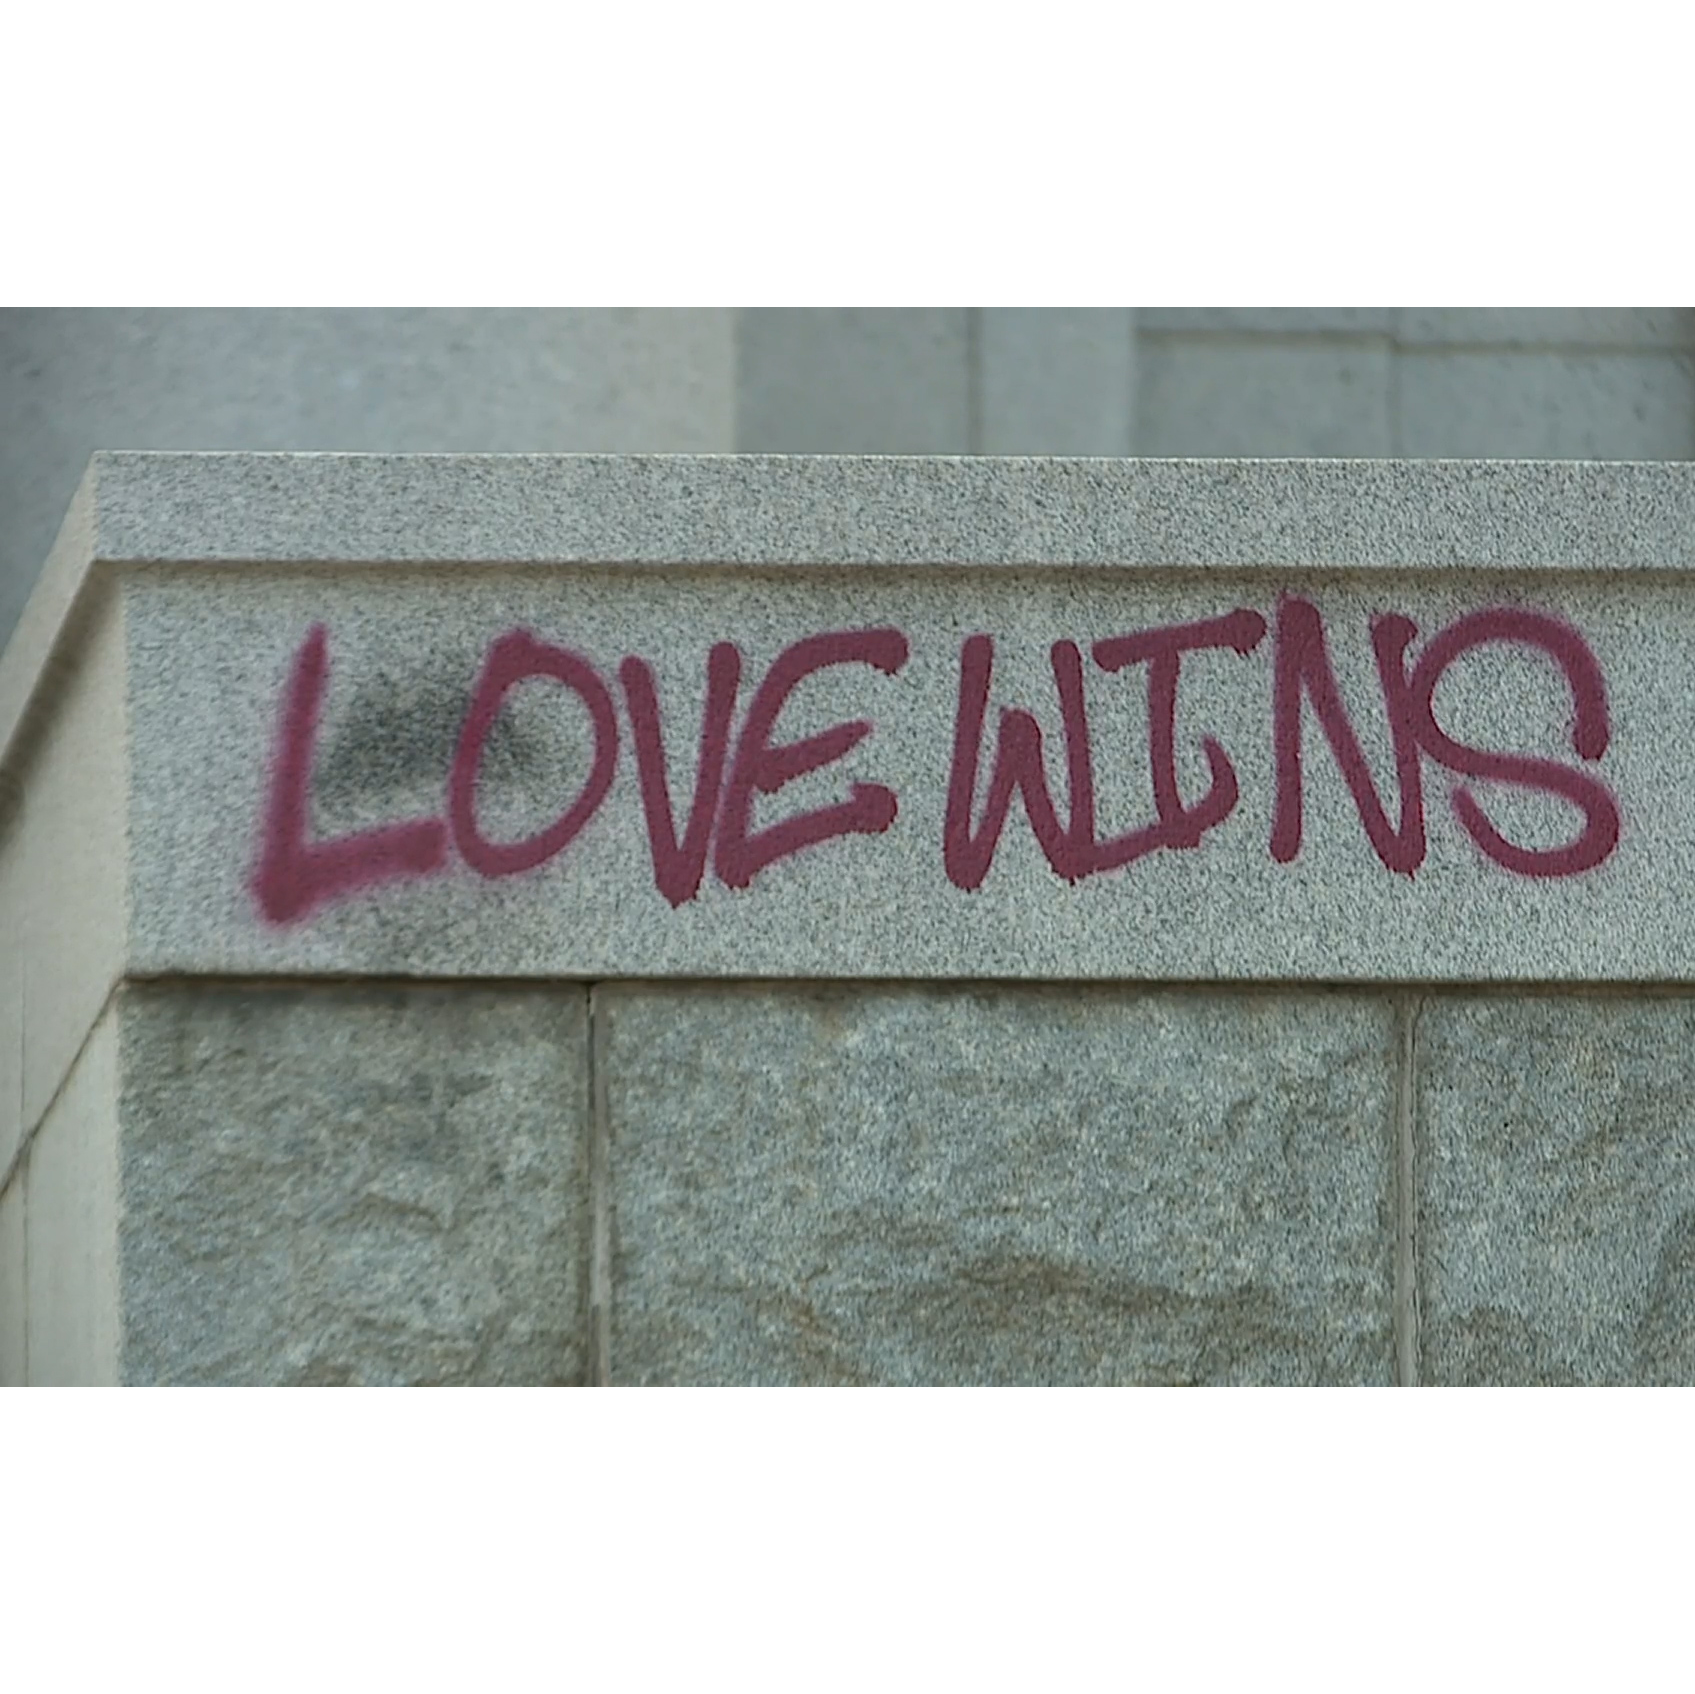 LOVE WINS